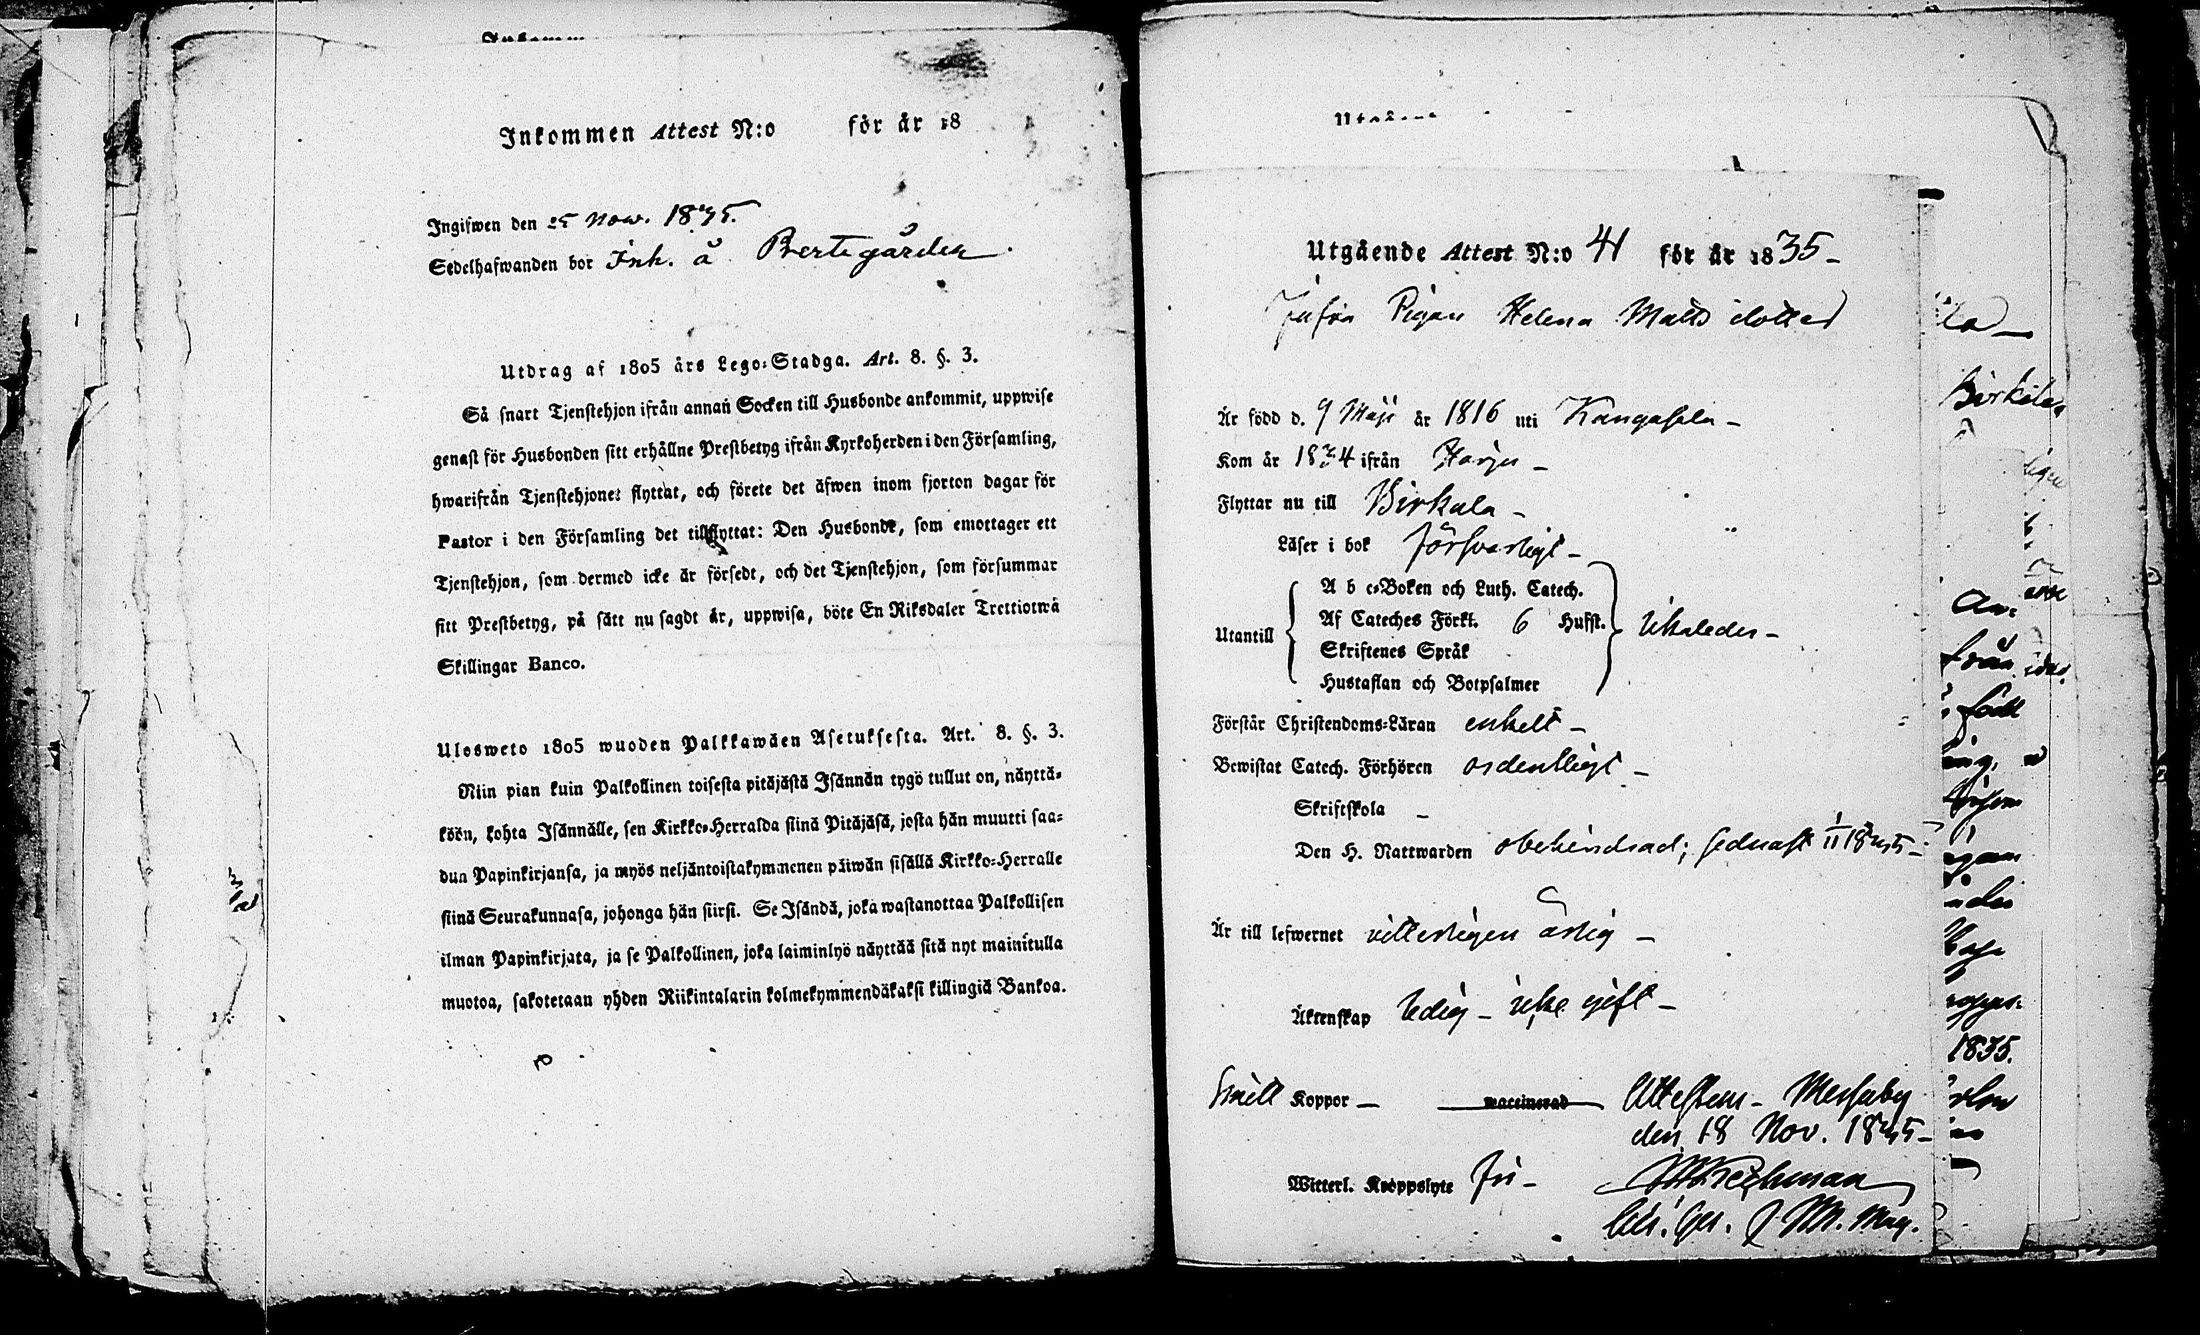 Inkommen Attest N:o för år 18
Ingifwen den 25 Now. 1835.
Sedelhafwanden bor Inh. å Bertegården.
Utdrag af 1805 års Lego-Stadga. Art. 8. §. 3.
Så snart Tjenstehjon ifrån annan Socken till Husbonde ankommit, uppwise
genast för Husbonden sitt erhållne Prestbetyg ifrån Kyrkoherden i den Församling,
hwarifrån Tjenstehjonet flyttat, och förete det äfwen inom fjorton dagar för
Pastor i den Församling det tillflyttat: Den Husbonde, som emottager ett
Tjenstehjon, som dermed icke är försedt, och det Tjenstehjon, som försummar
sitt Prestbetyg, på sätt nu sagdt är, uppwisa, böte En Riksdaler Trettiotwå
Skillingar Banco.
Ulosweto 1805 wuoden Palkkawäen Asetuksesta. Art. 8. §. 3.
Niin pian kuin Palkollinen toisesta pitäjästä Isännän tygö tullut on, näyttä-
köön, kohta Isännälle, sen Kirkko-Herralda siinä Pitäjäsä, josta hän muutti saa-
dun Papinkirjansa, ja myös neljäntoistakymmenen päiwän sisällä Kirkko-Herralle
siinä Seurakunnasa, johonga hän siirsi. Se Isändä, joka wastanottaa Palkollisen
ilman Papinkirjata, ja se Palkollinen, joka laiminlyö näyttää sitä nyt mainitulla
muotoa, sakotetaan yhden Riikintalarin kolmekymmendäkaksi killingiä Bankoa.
Utgående Attest N:o 41 för år 1835-
Pigan Helena Matts dotter
Är född d. 9 Maji år 1816 uti Kangasala-
Kom år 1834 ifrån Harju-
Flyttar nu till Birkala-
Läser i bok försvarligt-
Utantill
A b c-Boken och Luth. Catech.
Af Cateches Förkl. 6 Hufst.
Skriftenes Språk
Hustaflan och Botpsalmer
Förstår Christendoms-Läran enkelt-
Bewistat Catech. Förhören ordentligt-
Skriftskola -
Den H. Nattwarden obehindrad; sednast 1/11 1835-
Är till lefwernet witterligen ärlig-
Äktenskap ledig - icke gift-
haft Koppor - waccinerad
Attestem- Messuby
den 18 Nov. 1835-
Witterl. Kroppslyte fri-